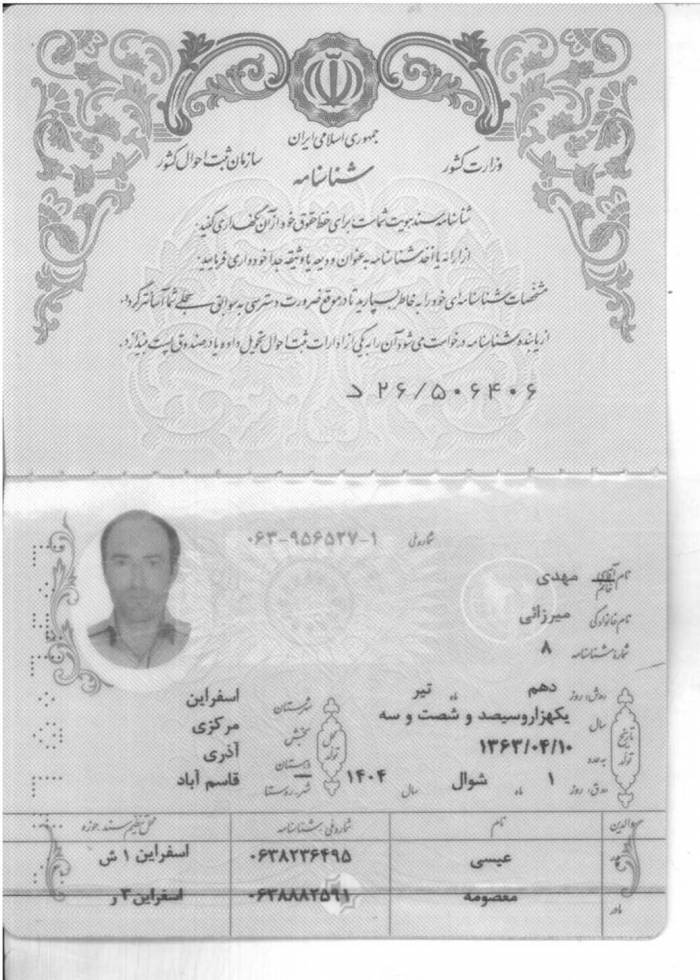 جمهوری اسلامی ایران
وزارت کشور
سازمان ثبت احوال کشور
شناسنامه
شناسنامه سند هویت شماست برای حفظ حقوق خود از آن نگهداری کنید.
از ارائه یا اخذ شناسنامه به عنوان ودیعه یا وثیقه جداً خودداری فرمایید.
مشخصات شناسنامه‌ای خود را به خاطر بسپارید تا در موقع ضرورت دسترسی به سوابق سجلی شما آسانتر گردد.
از یابنده شناسنامه درخواست می‌شود آن را به یکی از ادارات ثبت احوال تحویل داده یا در صندوق پست بیندازد.
د ۲۶/۵۰۶۴۰۶
شماره ملی ۰۶۳-۹۵۶۵۲۷-۱
نام آقای خانم مهدی
نام خانوادگی میرزائی
شماره شناسنامه ۸
تاریخ تولد
روز دهم ماه تیر
سال یکهزاروسیصد و شصت و سه
به عدد ۱۳۶۳/۰۴/۱۰
روز ۱ ماه شوال سال ۱۴۰۴
محل تولد
شهرستان اسفراین
بخش مرکزی
دهستان آذری
شهر، روستا قاسم آباد
والدین نام شماره ملی، شناسنامه محل تنظیم سند، حوزه
پدر عیسی ۰۶۳۸۲۳۶۴۹۵ اسفراین ۱ ش
مادر معصومه ۰۶۳۸۸۸۲۵۹۱ اسفراین ۳ ر